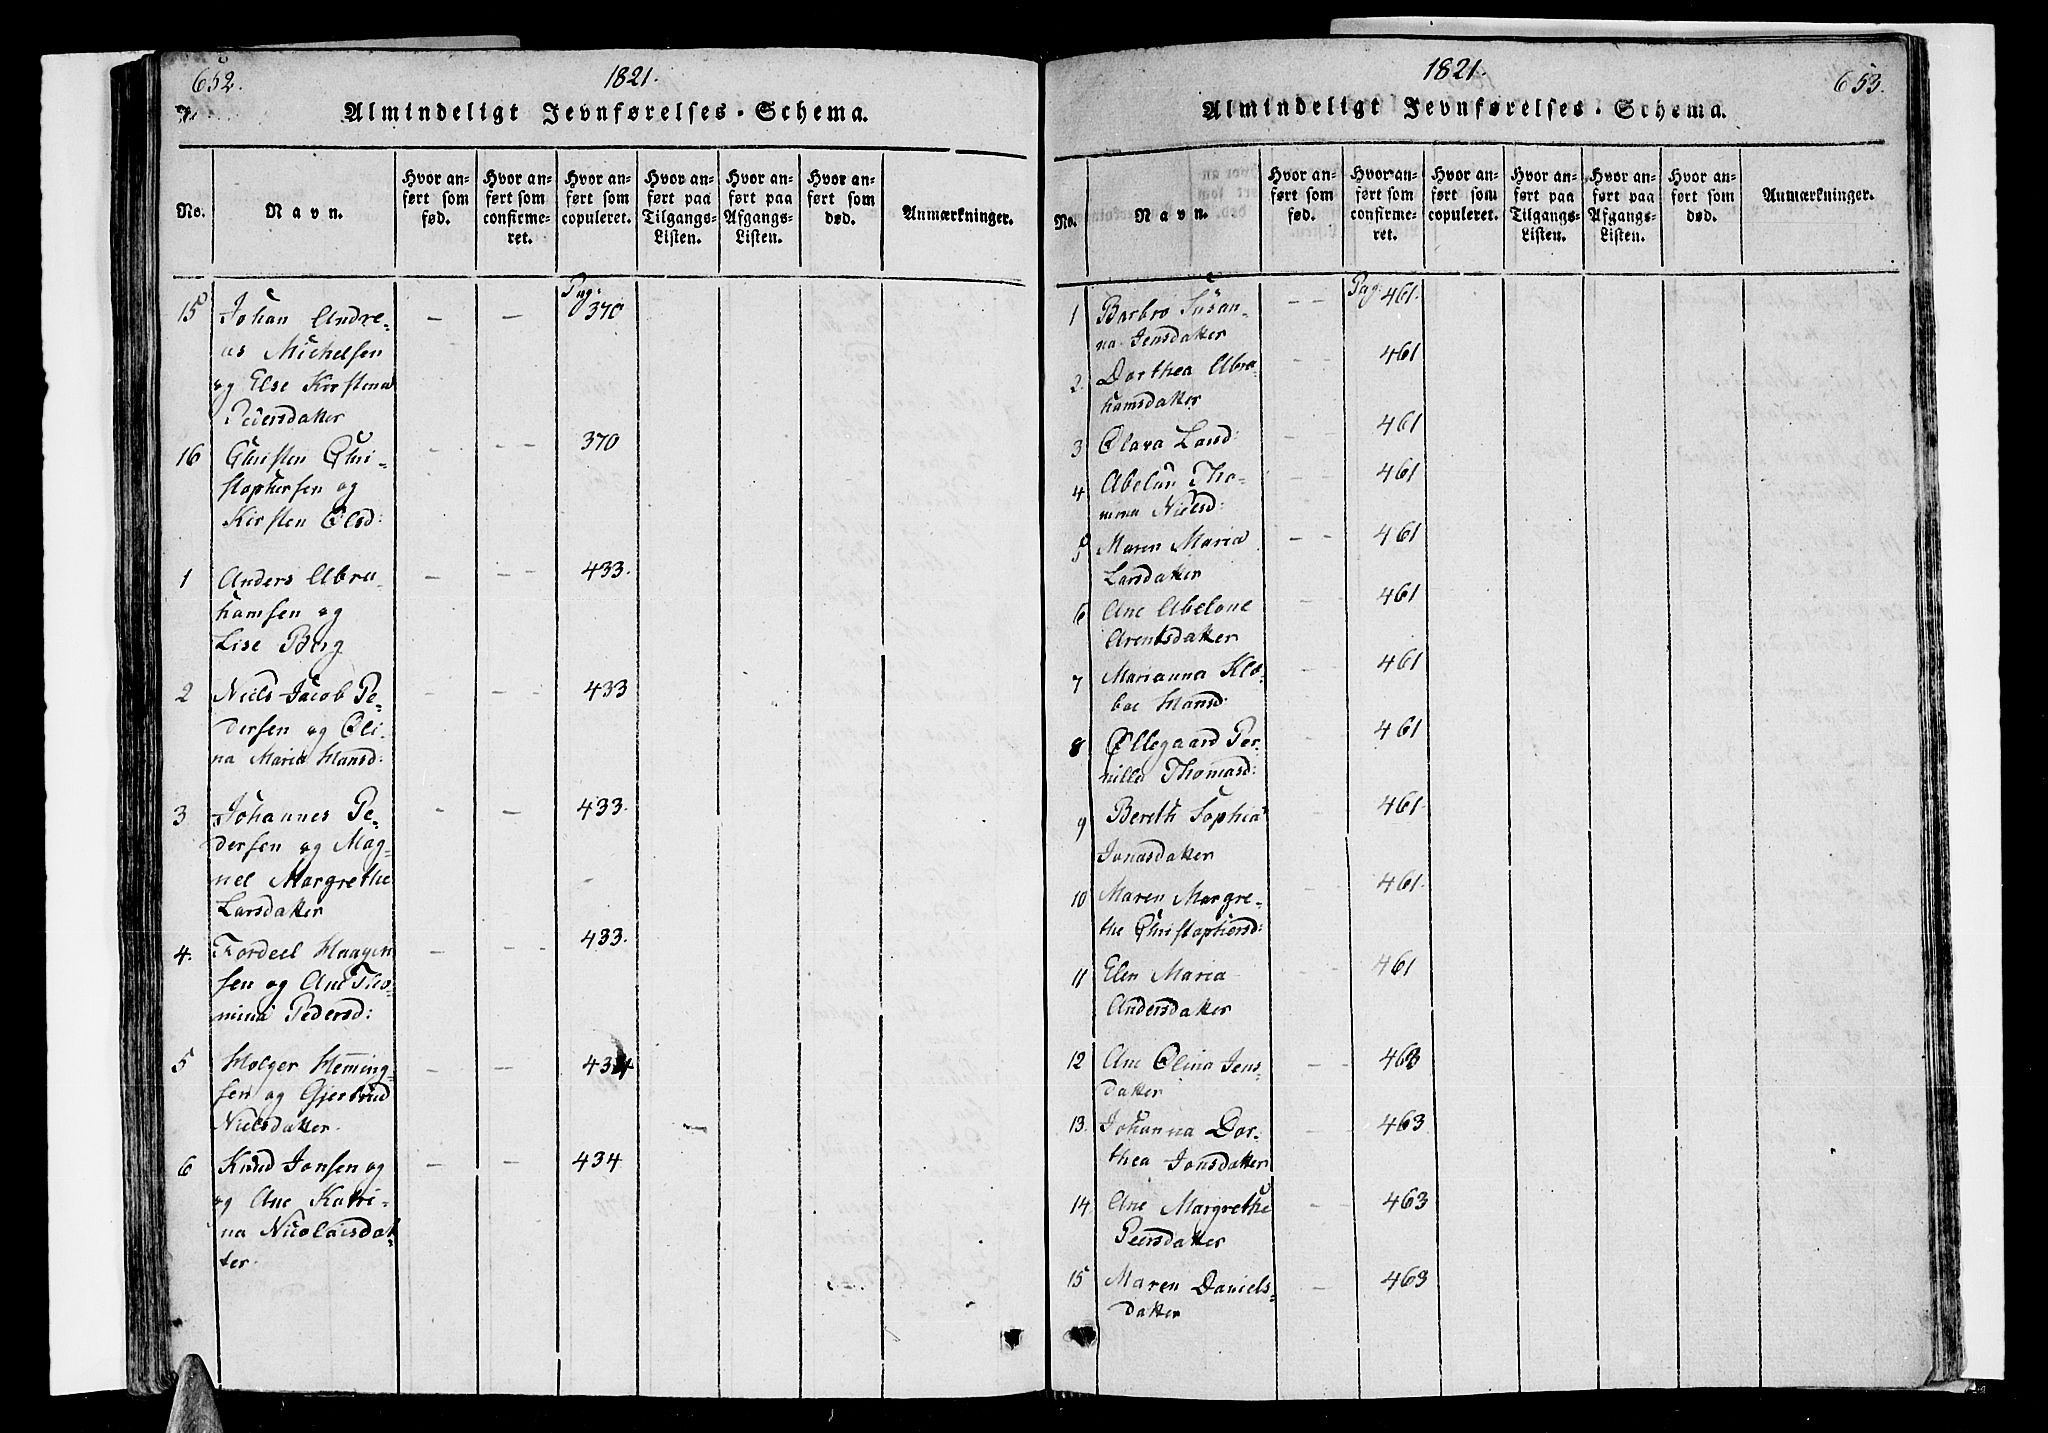 652.
1821.
Almindeligt Jevnførelses-Schema.
No.
Navn.
Hvor an-
ført som
fød.
Hvor an-
ført som
confirme-
ret.
Hvor an-
ført som
copuleret.
Hvor an-
ført paa
Tilgangs-
Listen.
Hvor an-
ført paa
Afgangs-
Listen.
Hvor an-
ført som
død.
Anmærkninger.
Pag:
15 Johan Andre= — — 370
as Michelsen
og Else Kirstena
Peiersdatter
16 Christen Chri= - - - 370
stophersen og
Kirsten Olsd:
1 Anders Abra= — - - 433.
hamsen og
Lise Berg
2 Niels Jacob Pe= - — - 433
dersen og Oli=
na Maria Hansd:
3 Johannes Pe= - — 433.
dersen og Mag=
nel Margrethe
Larsdatter
4. Fordeel Haagen — — 433.
sen og Ane Tho=
mina Pedersd:
5 Holger Heming= — -- 434
sen og Gjertrud
Nielsdatter.
6 Knud Jonsen og — — 434
og Ane Katri=
na Nicolaisdat=
ter.
1821.
653.
Almindeligt Jevnførelses-Schema.
No.
Navn.
Hvor an-
ført som
fød.
Hvor an-
ført som
confirme-
ret.
Hvor an-
ført som
copuleret.
Hvor an-
ført paa
Tilgangs-
Listen.
Hvor an-
ført paa
Afgangs-
Listen.
Hvor an-
ført som
død.
Anmærkninger.
1 Barbro Susan= - - Pag: 461.
na Jensdatter
2. Dorthea Abra= - - 461
hamsdatter
3 Clara Land: - - 461
4 Abelon Tho= - - 461
mina Nielsd:
5 Maren Maria - - 461
Larsdatter
6 Ane Abelone - - 461
Arentsdatter
7 Marianna Klo= - - 461
boe Hansd:
8 Øllegaard Per= - - 461
nilla Thomasd:
9 Bereth Sophia - - 461
Jonasdatter
10 Maren Margre= - - 461.
the Christophersd:
11 Elen Maria - - 461
Andersdatter
12 Ane Olina Jens= - - 463
datter
13. Johanna Dor= - - 463
thea Jonsdatter
14 Ane Margrethe - - 463
Peersdatter
15 Maren Daniels= - 463
datter